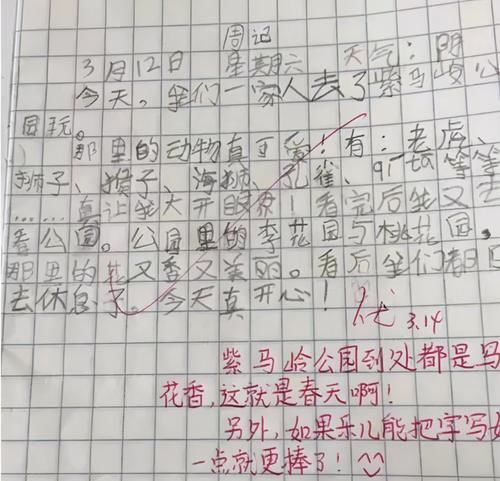 周记
3月12日 星期六 天气:阴
今天。我们一家人去了紫马岭公
园玩。
那里的动物真可爱!有:老虎、
狮子、猴子、海狮、孔雀、等等
……真让我大开眼界!看完后我又去
看公园。公园里的李花园与桃花园。
那里的花又香又美丽。看后我们都回
去休息了。今天真开心!
优 3.14
紫马岭公园到处都是鸟
花香,这就是春天啊!
另外,如果乐儿能把字写
一点就更棒了!